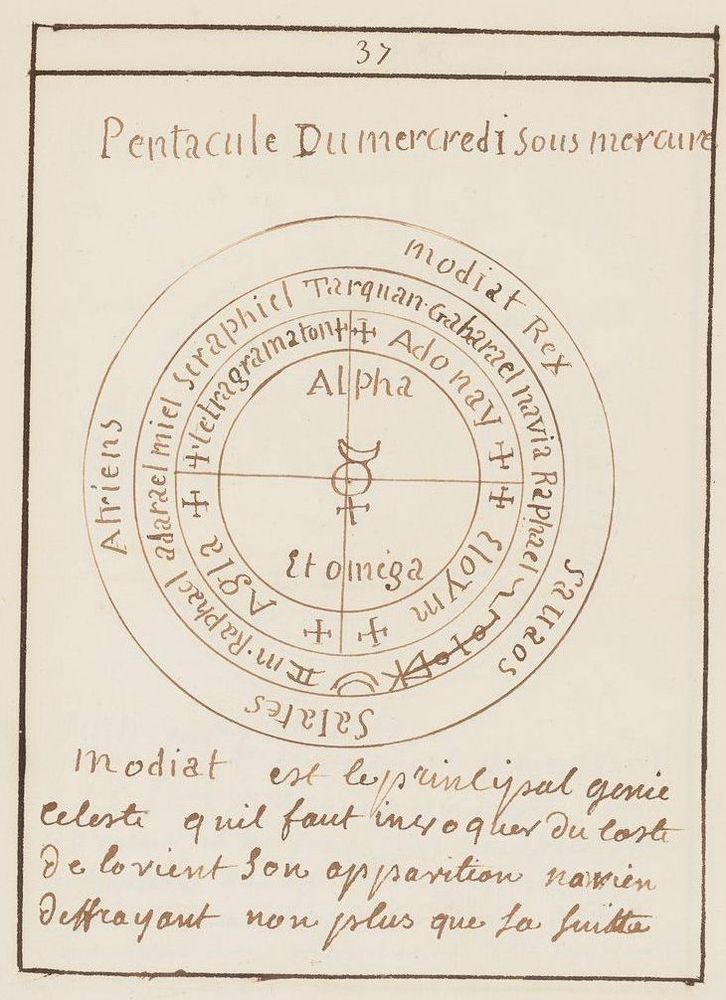 37
Pentacule Du mercredi sous mercure
modiat Rex
Sauaos
Salates
Atriens
Seraphiel Tarquan. Gabarael navia Raphael
m. Raphael adarael miel
✠ Adonay ✠
✠ Eloym ✠
✠ Agla ✠
✠ tetragramaton ✠
Alpha
Et omega
Modiat est le principal genie
celeste quil faut invoquer du coste
de lorient Son apparition narien
deffrayant non plus que sa suitte